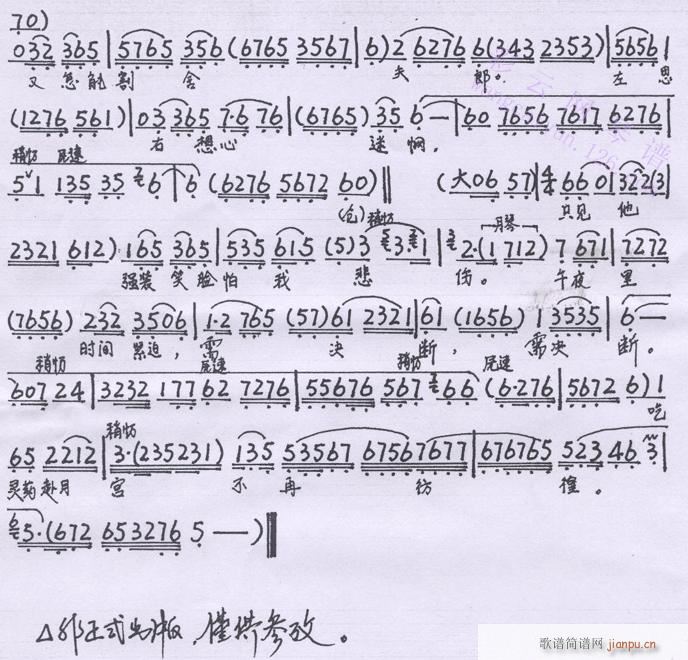 70)
032 365 | 5765 356 (6765 3567 | 6) 2 6276 6 (343 2353) | 5656 1
又 怎能 割 舍 夫 郎。 左 思
(1276 561) | 03 365 7·6 76 | (6765) 35 6 — | 60 7656 7617 6276 |
右 想 心 迷 惘，
稍切 尾速
5 1 135 35 6 6 (6276 5672 60) || (大06 57) | 66 01 322(3 |
(仓) 稍切 只见 他
2321 612) 165 365 | 535 615 (5)3 3·1 | 2·(1 712) 7 671 | 7272
月琴
强装 笑脸 怕 我 悲 伤。 午夜 里
(7656) 232 3506 | 1·2 765 (57)61 2321 | 61 (1656) 1 3535 | 6 —
时间 紧迫， 需 决 断， 需决 断。
稍切 尾速 稍切 尾速
607 24 | 3232 177 62 7276 | 55676 567 66 (6·276 | 5672 6) 1
吃
稍切
65 2212 | 3·(235231) 135 53567 67567677 | 676765 523 46 3 |
灵药 赴月 宫 不 再 彷 徨。
5·(672 653276 5 — —) ||
△非正式出版，仅供参考。
歌谱简谱网
jianpu.cn